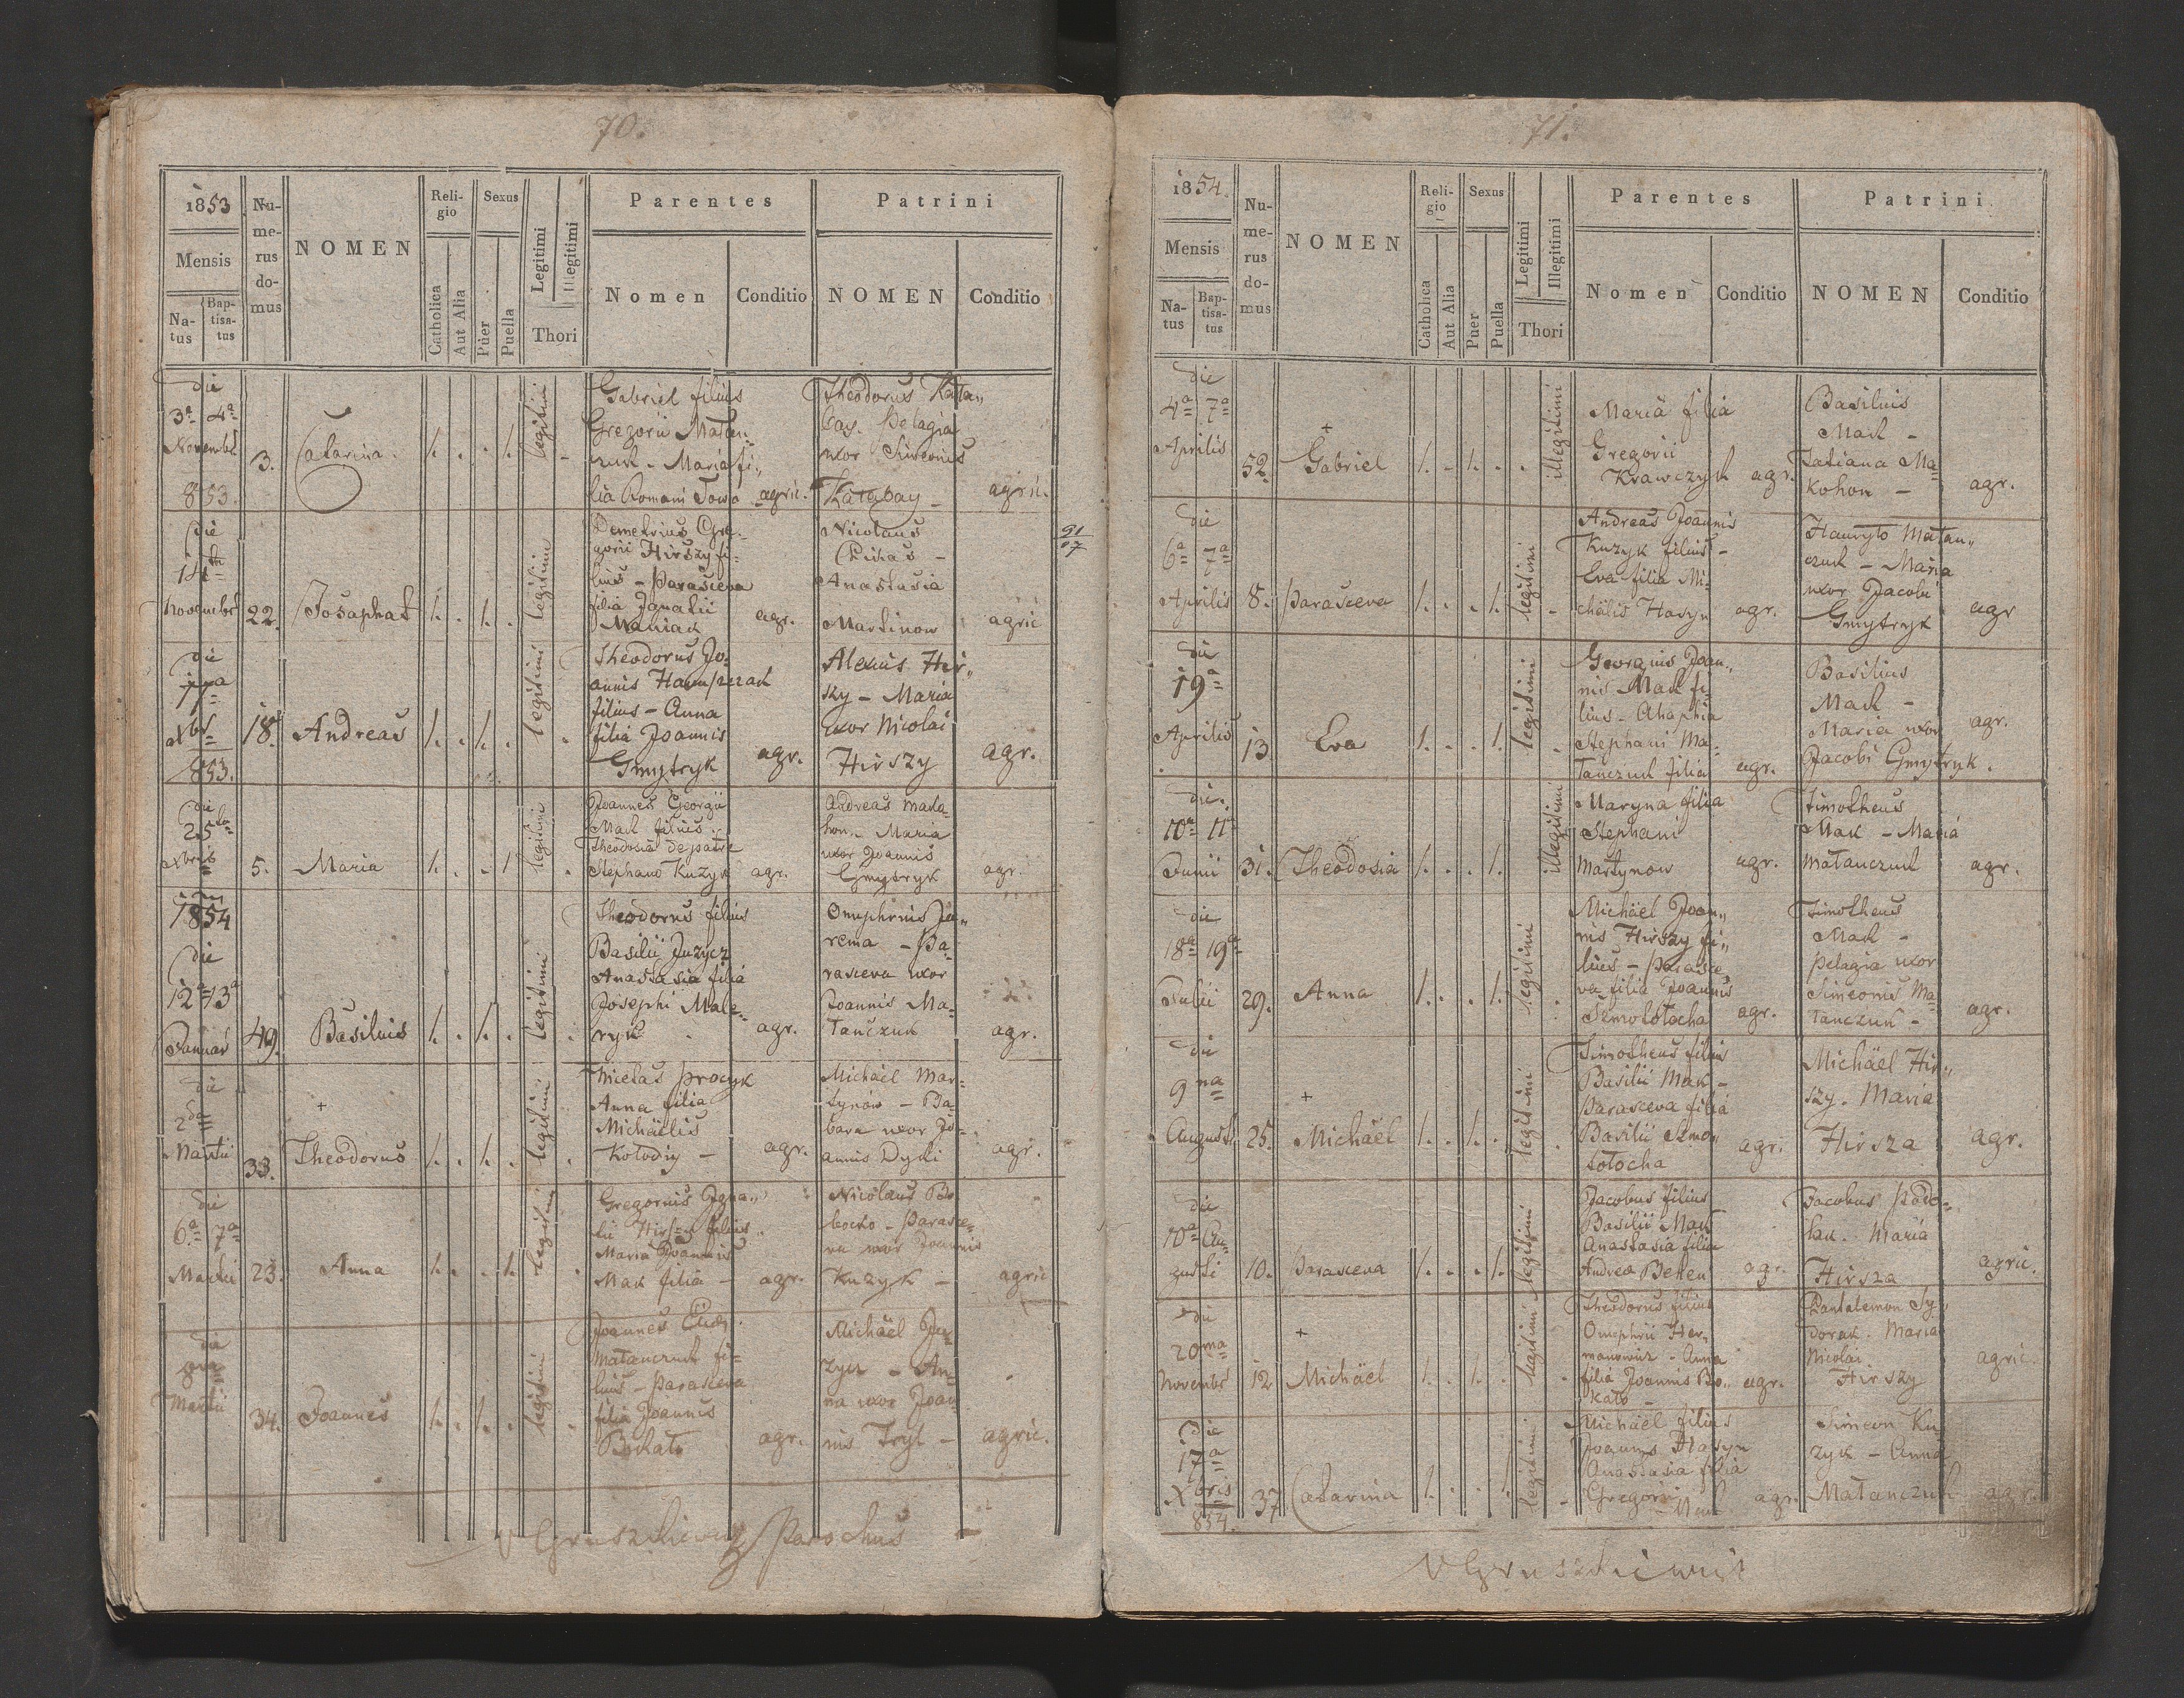 70.
1853
Nu-
me-
rus
do-
mus
NOMEN
Reli-
gio
Sexus
Legitimi
Illegitimi
Thori
Parentes
Patrini
Mensis
Na-
tus
Bap-
tisa-
tus
Catholica
Aut Alia
Puer
Puella
Nomen
Conditio
NOMEN
Conditio
die
3ª 4ª
Novembr
853.
3.
Catarina.
1. . . 1.
legitimi
Gabriel filius
Gregorii Matan„
czuk - Maria fi„
lia Romani
agric.
Theodorus Kata„
bay. Pelagia
uxor Simeonis
Katabay -
agric.
die
14ta
Novembr
22.
Josaphat
1. . 1. .
legitimi
Demetrius Gre-
gorii Hirszy fi-
lius - Parasceva
filia Ignatii
Maniak
agr.
Nicolaus
-
Anastasia
Martinow
agric
die
17ª
Xbr
853.
18.
Andreas
1. . 1. .
legitimi
Theodorus Jo-
annis
filius - Anna
filia Joannis
Gmytryk
agr.
Alexius Hir„
szy - Maria
uxor Nicolai
Hirszy
agr.
die
25ta
Xbris
5.
Maria
1. . . 1
legitimi
Joannes Georgii
Mak filius.
Theodosia de patre
Stephano Kuzyk
agr.
Andreas Mako-
hon. Maria
uxor Joannis
Gmytryk
agr.
1854
die
12ª 13ª
Januar
49.
Basilius
1. . 1. .
legitimi
Theodorus filius
Basilii Juzycz
Anastasia filia
Josephi Male-
ryk
agr.
Onuphrius Ja„
rema - Pa-
rasceva uxor
Joannis Ma-
tanczuk
agr.
die
2da
Martii
33.
+
Theodorus
1. . 1. .
legitimi
Nicetas Procyk
Anna filia
Michäelis
Kołodiy -
agr.
Michäel Mar-
tynów - Ba-
bara uxor Jo-
annis Dyki
agr.
die
6ª 7ª
Martii
23.
Anna
1. . . 1.
legitimi
Gregorius Igna„
tii filius
Maria Joannis
Mak filia -
agr.
Nicolaus Bo
- Parasce„
va uxor Joannis
Kuzyk -
agric
die
Martii
34.
Joannes
1. . 1. .
legitimi
Joannes
Matanczuk fi-
lius - Parasceva
filia Joannis
agr.
Michäel Ju-
zycz - An-
na uxor Joan
nis -
agric.
Parochus
91
71.
1854.
Nu-
me-
rus
do-
mus
NOMEN
Reli-
gio
Sexus
Legitimi
Illegitimi
Thori
Parentes
Patrini
Mensis
Na-
tus
Bap-
tisa-
tus
Catholica
Aut Alia
Puer
Puella
Nomen
Conditio
NOMEN
Conditio
die
4ª 7ª
Aprilis
52.
+
Gabriel
1. . 1. .
illegitimi
Maria filia
Gregorii
Krawczyk
agr.
Basilius
Mak -
Tatiana Ma-
kohon -
agr.
die
6ª 7ª
Aprilis
8.
Parasceva
1. . . 1.
legitimi
Andreas Joannis
Kuzyk filius -
Eva filia Mi-
chälis Hasyn
agr.
Hawryło Matan„
czuk - Maria
uxor Jacobi
Gmytryk
agr
die
19ª
Aprilis
13
Eva
1. . . 1.
legitimi
Georgius Joan„
nis Mak fi-
lius - Ahaphia
Stephani Ma-
tanczuk filia
agr.
Basilius
Mak -
Maria uxor
Jacobi Gmytryk.
agr.
die
10ª 11ª
Junii
31.
Theodosia
1. . . 1.
illegitimi
Maryna filia
Stephani
Martynow
agr.
Timotheus
Mak - Maria
Matanczuk
agr.
die
18ª 19ª
Julii
29.
Anna
1. . . 1.
legitimi
Michäel Joan„
nis Hirszy fi„
lius - Parasce
va filia Joannis
Szmołotocha
agr.
Timotheus
Mak -
Pelagia uxor
Simeonis Ma-
tanczuk -
agr.
die
9na
Augusti
25.
+
Michäel
1. . 1. .
legitimi
Timotheus filius
Basilii Mak -
Parasceva filia
Basilii Szmo„
łotocha
agr.
Michäel Hir„
szy. Maria
Hirsza
agr.
die
10ª Au-
gusti
10.
Parasceva
1. . . 1.
legitimi
Jacobus filius
Basilii Mak
Anastasia filia
Andrea
agr.
Jacobus Podo-
lak. Maria
Hirsza
agric.
die
20ma
Novembr
12
+
Michäel
1. . 1. .
legitimi
Theodorus filius
Onuphrii Her„
manowicz - Anna
filia Joannis
agr.
Pantalemon Sy„
dorak. Maria
Nicolai
Hirszy
agric.
die
17ª
Xbris
854.
37
Catarina
1. . . 1.
legitimi
Michäel filius
Joannis Hasyn
Anastasia filia
Gregorii
agr.
Simeon Ku
zyk - Anna
Matanczuk
agr.